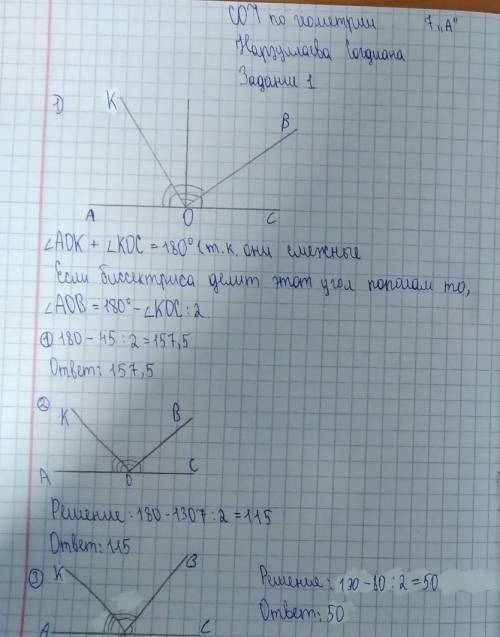 СОЧ по геометрии 7 „А"
Нарзуллаева Согдиана
Задание 1
1)
K
B
A O C
∠AOK + ∠KOC = 180° (т.к. они смежные
Если биссектриса делит этот угол пополам то,
∠AOB = 180° - ∠KOC : 2
① 180 - 45 : 2 = 157,5
Ответ: 157,5
②
K B
A O C
Решение: 180 - 130 : 2 = 115
Ответ: 115
③ K B
A C
Решение: 180 - 80 : 2 = 50
Ответ: 50